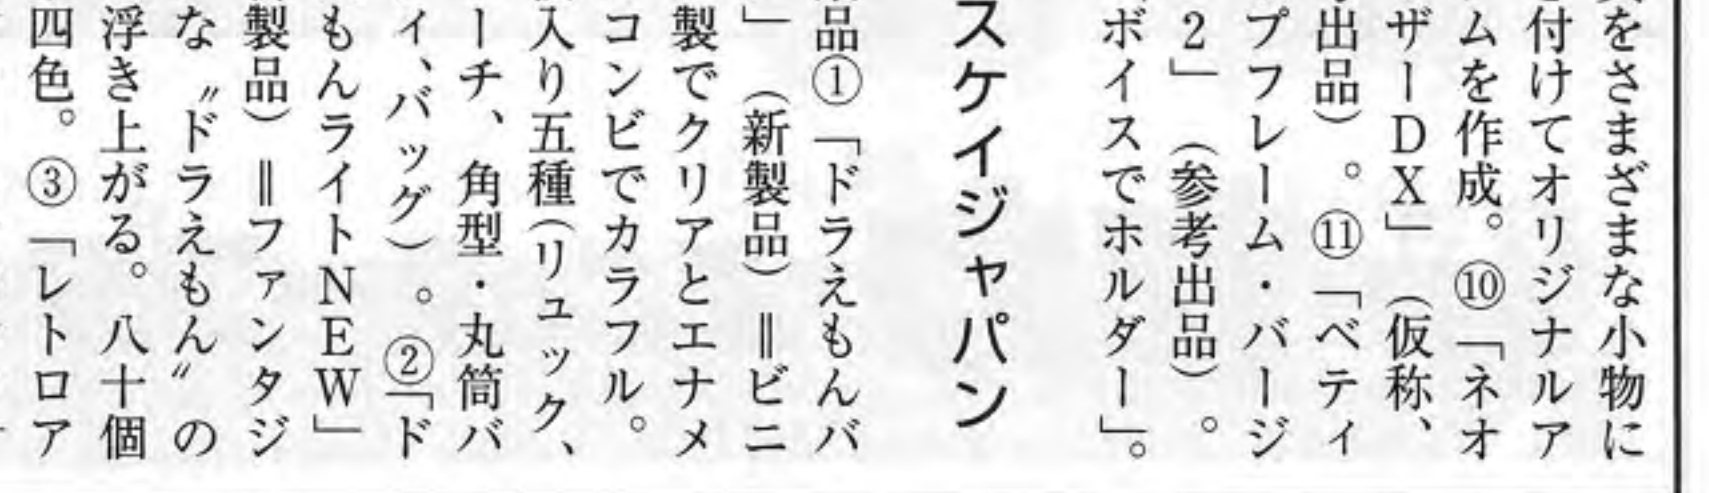 をさまざまな小物に
付けてオリジナルア
ムを作成。⑩「ネオ
ザーDX」（仮称、
出品）。⑪「ベティ
プフレーム・バージ
2」（参考出品）。
ボイスでホルダー」。
スケイジャパン
品①「ドラえもんバ
」（新製品）＝ビニ
製でクリアとエナメ
コンビでカラフル。
入り五種（リュック、
ーチ、角型・丸筒バ
ィ、バッグ）。②「ド
もんライトNEW」
製品）＝ファンタジ
な〝ドラえもん〟の
浮き上がる。八十個
四色。③「レトロア